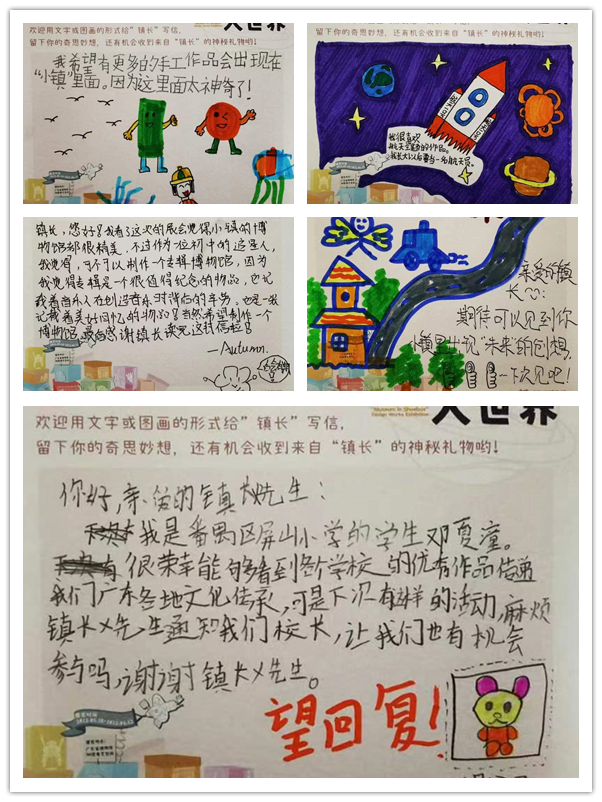 大世界
欢迎用文字或图画的形式给"镇长"写信,
留下你的奇思妙想,还有机会收到来自"镇长"的神秘礼物哟!
我希望有更多的手工作品会出现在
"小镇"里面。因为这里面太神奇了!
欢迎用文字或图画的形式给"镇长"写信,
留下你的奇思妙想,还有机会收到来自"镇长"的神秘礼物哟!
我很喜欢
航天会
我长大以后要当一名航天员。
镇长,您好!我看了这次的展会觉得小镇的博
物馆都很精美,不过作为一位初中的追星人,
我觉得,可不可以制作一个专辑博物馆,因为
我觉得专辑是一个很值得纪念的物品,它记
载着音乐人在创造音乐时背后的辛劳,也是一张
记载着美好回忆的物品!当然希望制作一个
博物馆,最后感谢镇长读完这封信啦!
—Autumn.
亲爱的镇
长
期待可以见到你
小镇里出现"未来的幻想,
下次见吧!
"Museum in Shoebox"
Design Works Exhibition
大世界
欢迎用文字或图画的形式给"镇长"写信,
留下你的奇思妙想,还有机会收到来自"镇长"的神秘礼物哟!
你好,亲爱的镇长先生:
我是番禺区屏山小学的学生邓夏潼。
很荣幸能够看到各个学校的优有作品传递
我们广东各地文化传承,可是下次有这样的活动,麻烦
镇长先生通知我们校长,让我们也有机会
参与吗,谢谢镇长先生。
望回复!